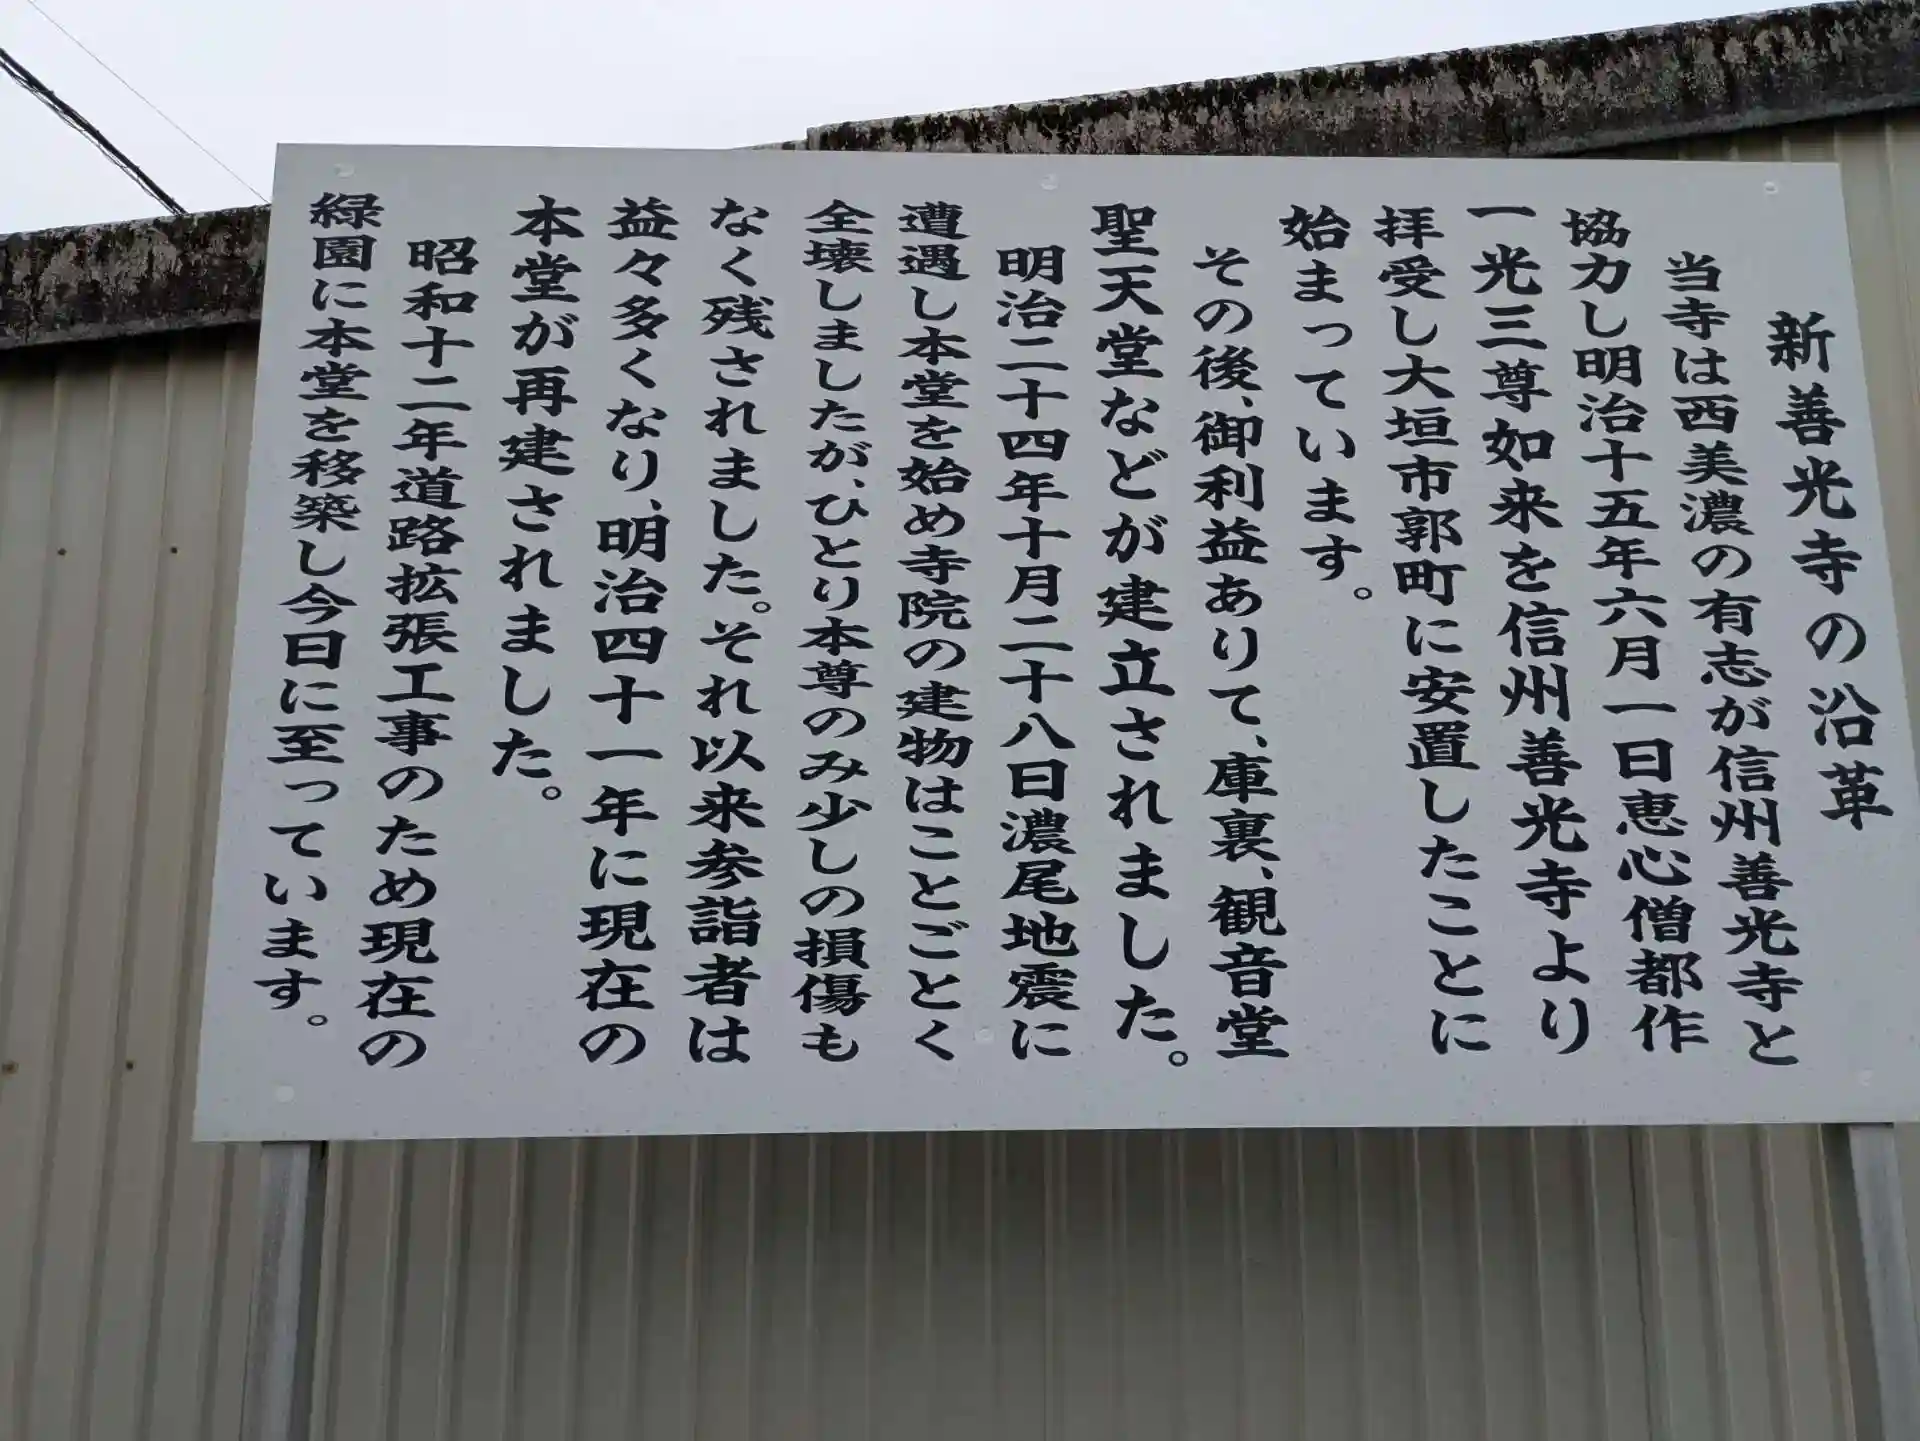 新善光寺の沿革
当寺は西美濃の有志が信州善光寺と
協力し明治十五年六月一日恵心僧都作
一光三尊如来を信州善光寺より
拝受し大垣市郭町に安置したことに
始まっています。
その後、御利益ありて、庫裏、観音堂
聖天堂などが建立されました。
明治二十四年十月二十八日濃尾地震に
遭遇し本堂を始め寺院の建物はことごとく
全壊しましたが、ひとり本尊のみ少しの損傷も
なく残されました。それ以来参詣者は
益々多くなり、明治四十一年に現在の
本堂が再建されました。
昭和十二年道路拡張工事のため現在の
緑園に本堂を移築し今日に至っています。